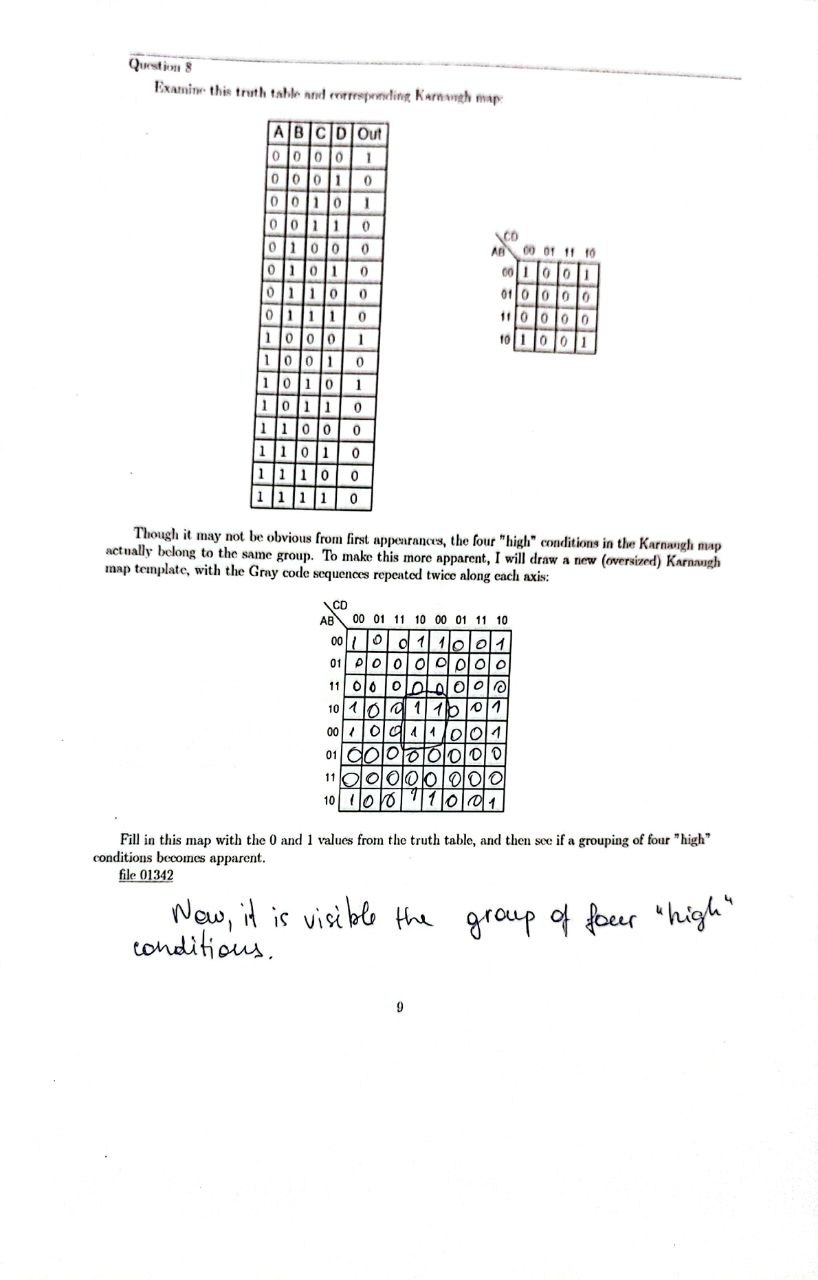 Question 8
Examine this truth table and corresponding Karnaugh map:
A B C D Out
0 0 0 0 1
0 0 0 1 0
0 0 1 0 1
0 0 1 1 0
0 1 0 0 0
0 1 0 1 0
0 1 1 0 0
0 1 1 1 0
1 0 0 0 1
1 0 0 1 0
1 0 1 0 1
1 0 1 1 0
1 1 0 0 0
1 1 0 1 0
1 1 1 0 0
1 1 1 1 0
CD
AB 00 01 11 10
00 1 0 0 1
01 0 0 0 0
11 0 0 0 0
10 1 0 0 1
Though it may not be obvious from first appearances, the four "high" conditions in the Karnaugh map
actually belong to the same group. To make this more apparent, I will draw a new (oversized) Karnaugh
map template, with the Gray code sequences repeated twice along each axis:
CD
AB 00 01 11 10 00 01 11 10
00 1 0 0 1 1 0 0 1
01 0 0 0 0 0 0 0 0
11 0 0 0 0 0 0 0 0
10 1 0 0 1 1 0 0 1
00 1 0 0 1 1 0 0 1
01 0 0 0 0 0 0 0 0
11 0 0 0 0 0 0 0 0
10 1 0 0 1 1 0 0 1
Fill in this map with the 0 and 1 values from the truth table, and then see if a grouping of four "high"
conditions becomes apparent.
file 01342
Now, it is visible the group of four "high"
conditions.
9